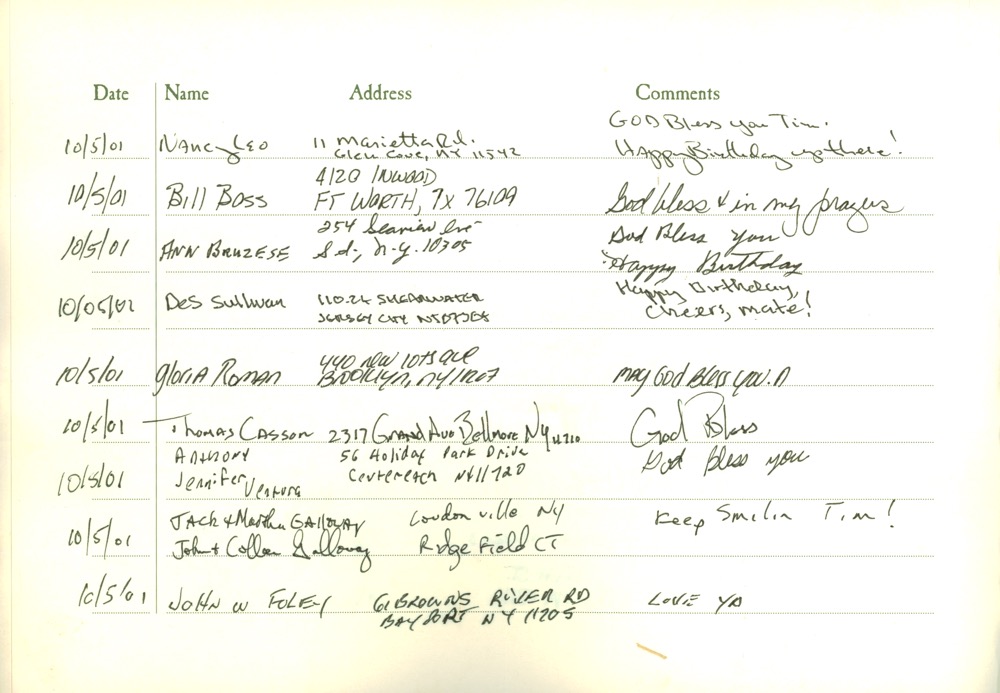 Date Name Address Comments
GOD Bless you Tim.
10/5/01 Nancy Leo 11 Marietta Rd.
Glen Cove, NY 11542 Happy Birthday up there!
4120 INWOOD
10/5/01 Bill Boss FT WORTH, TX 76109 God bless & in my prayers
254 Seaview Ave
God Bless you
10/5/01 ANN BRUZESE S.I., N.Y. 10305
Happy Birthday
Happy Birthday,
10/05/01 Des Sullivan SHEARWATER cheers, mate!
JERSEY CITY
440 new lots ave
10/5/01 Gloria Roman Brooklyn, NY 11207 may God Bless you.
10/5/01 Thomas Casson 2317 Grand Ave Bellmore NY 11710 God Bless
Anthony 56 Holiday Park Drive God Bless you
10/5/01 Jennifer Ventura Centereach NY 11720
Jack & Martha GALLOWAY Loudonville NY Keep Smilin Tim!
10/5/01 John & Colleen Galloway Ridgefield CT
10/5/01 JOHN W FOLEY 61 BROWNS RIVER RD LOVE YA
BAYPORT NY 11705